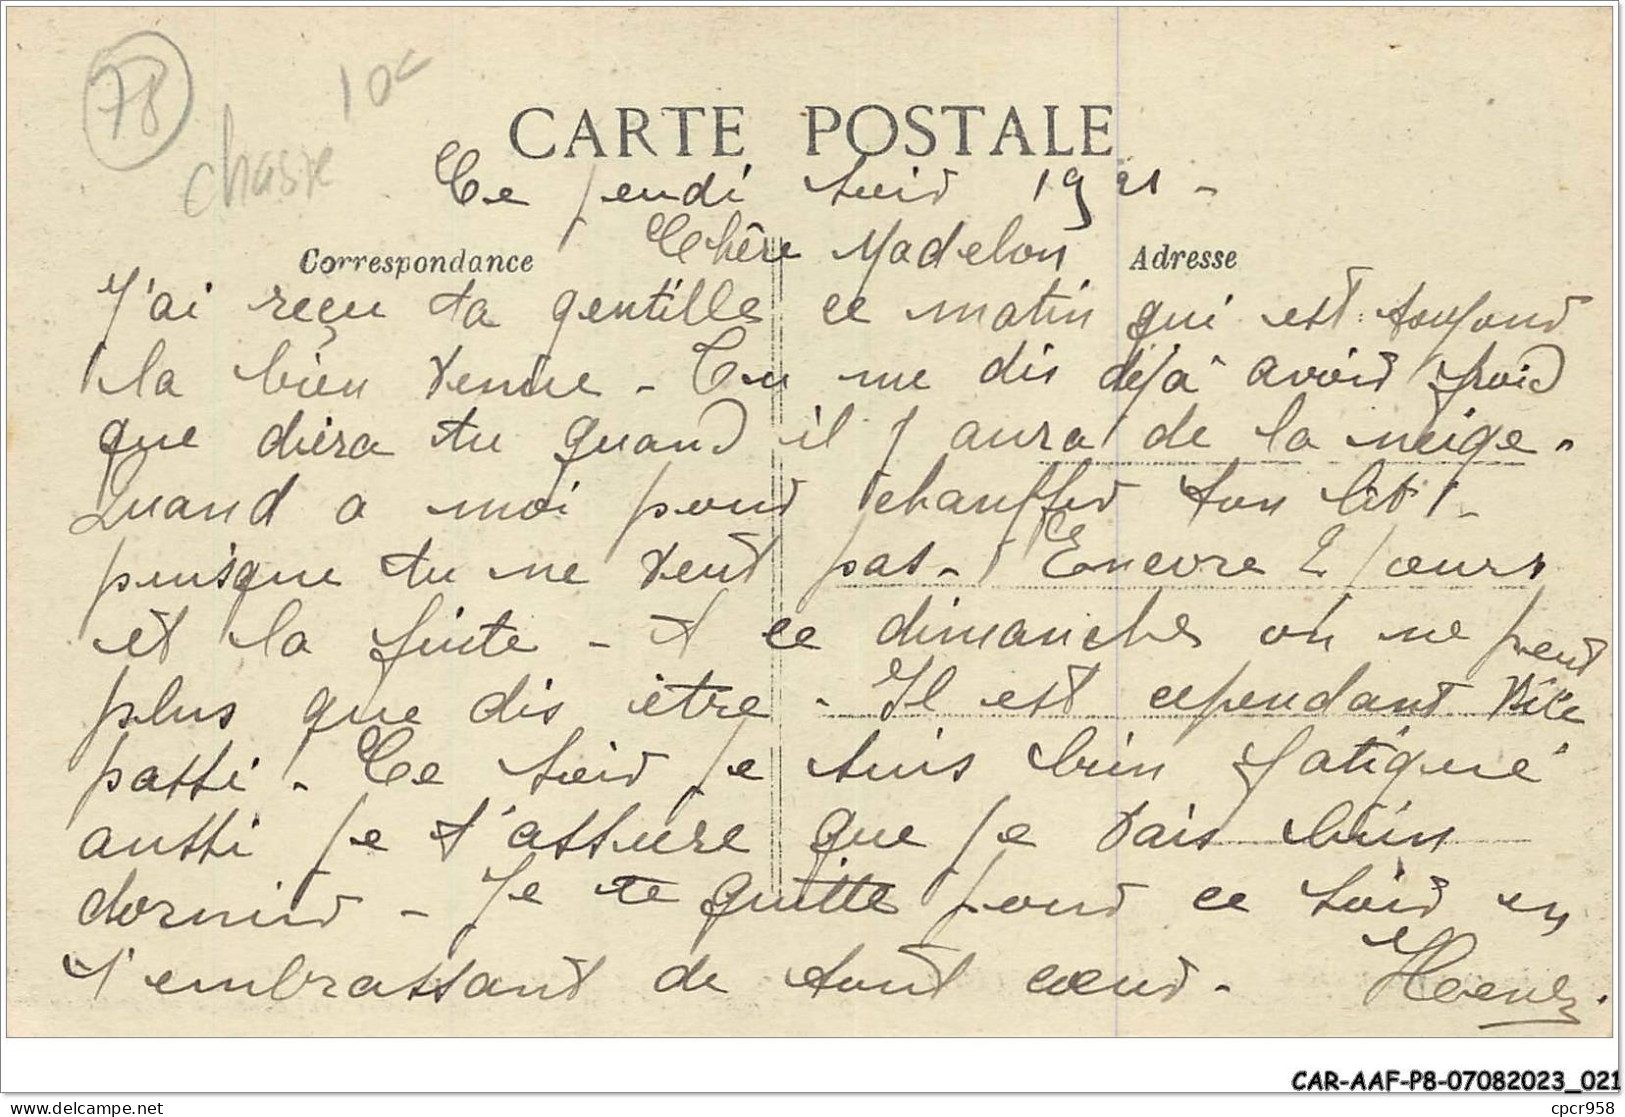 78
10c
chasse
CARTE POSTALE
Ce jeudi soir 1921 -
Correspondance
Chère Madelon
Adresse
J'ai reçu ta gentille ce matin qui est toujours
la bien venue - Tu me dis déjà avoir froid
que diera tu quand il y aura de la neige -
Quand a moi pour chauffer ton lit -
puisque tu ne veut pas - Encore 2 jours
et la fuite - et ce dimanche on ne peut
plus que dis être - Il est cependant vite
passé - Ce soir je suis bien fatigué
aussi je t'assure que je vais bien
dormir - Je te quitte pour ce soir en
t'embrassant de tout coeur -
CAR-AAF-P8-07082023_021
delcampe.net
cpcr958